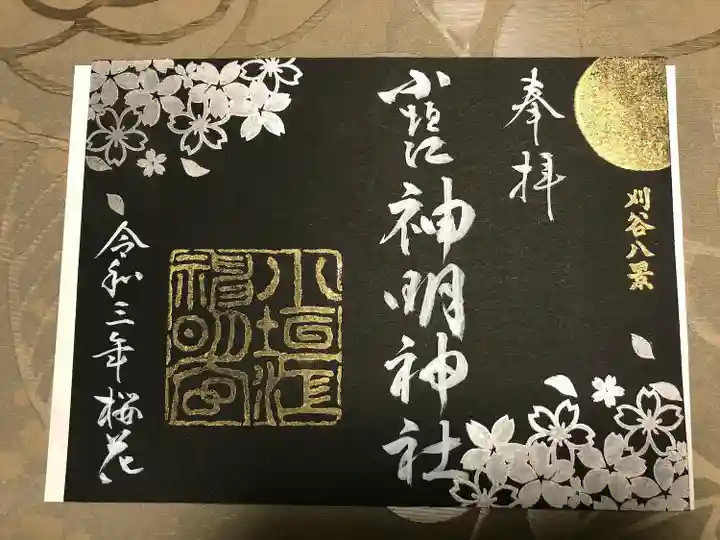 刈谷八景
奉拝
小垣江神明神社
小垣江
神明宮
令和三年桜花